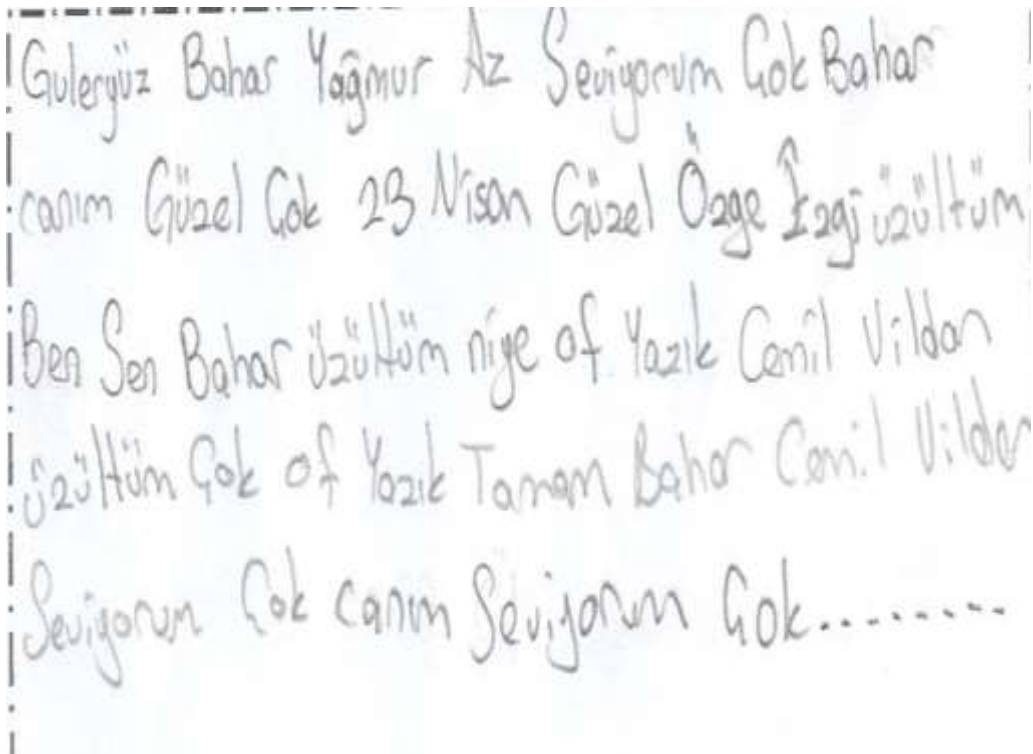 Gulergüz Bahar Yağmur Az Seviyorum Çok Bahar
canım Güzel Çok 23 Nisan Güzel Özge İzgi üzültüm
Ben Sen Bahar üzültüm niye of Yazık Cemil Vildan
üzültüm Çok of Yazık Tamam Bahar Cemil Vildan
Seviyorum Çok canım Seviyorum Çok.........